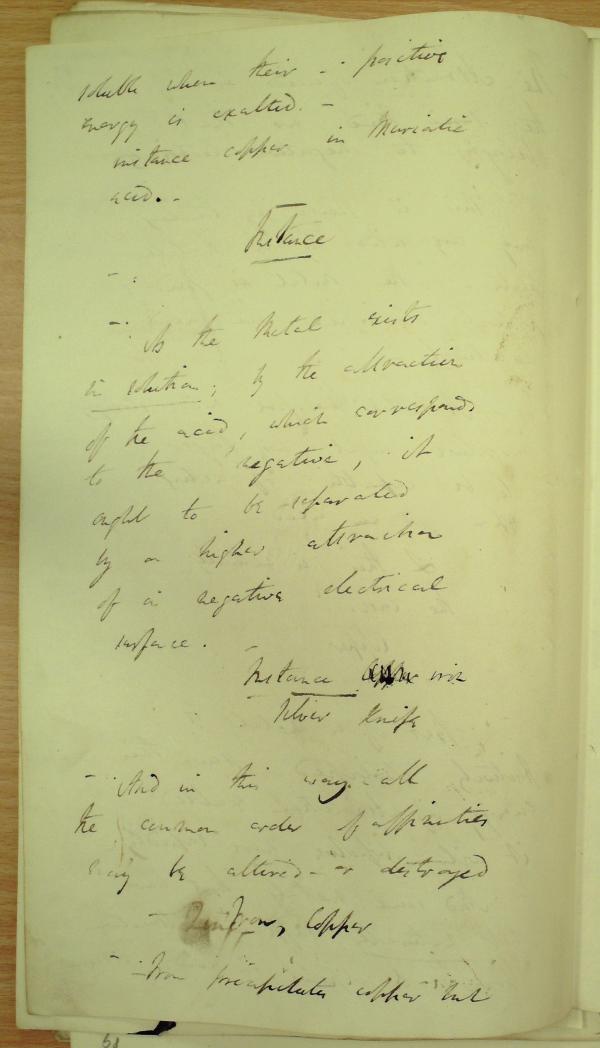 soluble when their - positive
energy is exalted. -
instance copper in Muriatic
acid. -
Instance
- As the Metal exists
in solution, by the attraction
of the acid, which corresponds
to the negative, it
ought to be separated
by a higher attraction
of a negative electrical
surface.
Instance iron
Silver Knife
- And in this way all
the common order of affinities
may be altered - or destroyed
- Iron, Copper
- Iron precipitates copper but
58